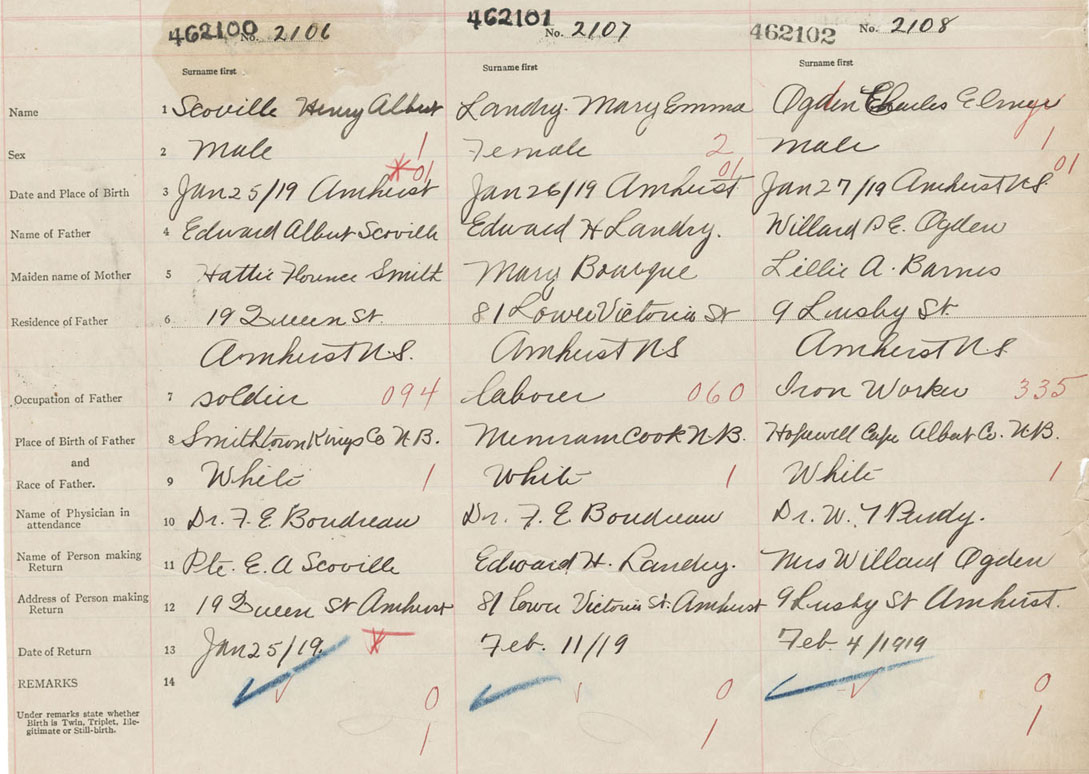 462100 No. 2106 462101 No. 2107 462102 No. 2108
Surname first Surname first Surname first
Name 1 Scoville Henry Albert Landry. Mary Emma Ogden Charles Elmer
Sex 2 Male 1 Female 2 Male 1
01 01 01
Date and Place of Birth 3 Jan 25/19 Amherst Jan 26/19 Amherst Jan 27/19 Amherst N.S.
Name of Father 4 Edward Albert Scoville Edward H Landry. Willard E. Ogden
Maiden name of Mother 5 Hattie Florence Smith Mary Bourque Lillie A. Barnes
Residence of Father 6 19 Queen St. 81 Lower Victoria St 9 Lusby St.
Amherst N.S. Amherst NS Amherst N.S
Occupation of Father 7 soldier 094 laborer 060 Iron Worker 335
Place of Birth of Father 8 Smithtown Kings Co N.B. Memramcook N.B. Hopewell Cape Albert Co. N.B.
and
Race of Father. 9 White 1 White 1 White 1
Name of Physician in
attendance 10 Dr. F. E Boudreau Dr. F. E Boudreau Dr. W. T Purdy.
Name of Person making
Return 11 Pte. E. A Scoville Edward H. Landry. Mrs Willard Ogden
Address of Person making
Return 12 19 Queen St Amherst 81 lower Victoria St. Amherst 9 Lusby St Amherst.
Date of Return 13 Jan 25/19. Feb. 11/19 Feb. 4/1919
REMARKS 14 0 0 0
Under remarks state whether
Birth is Twin, Triplet, Ille-
gitimate or Still-birth. 1 1 1